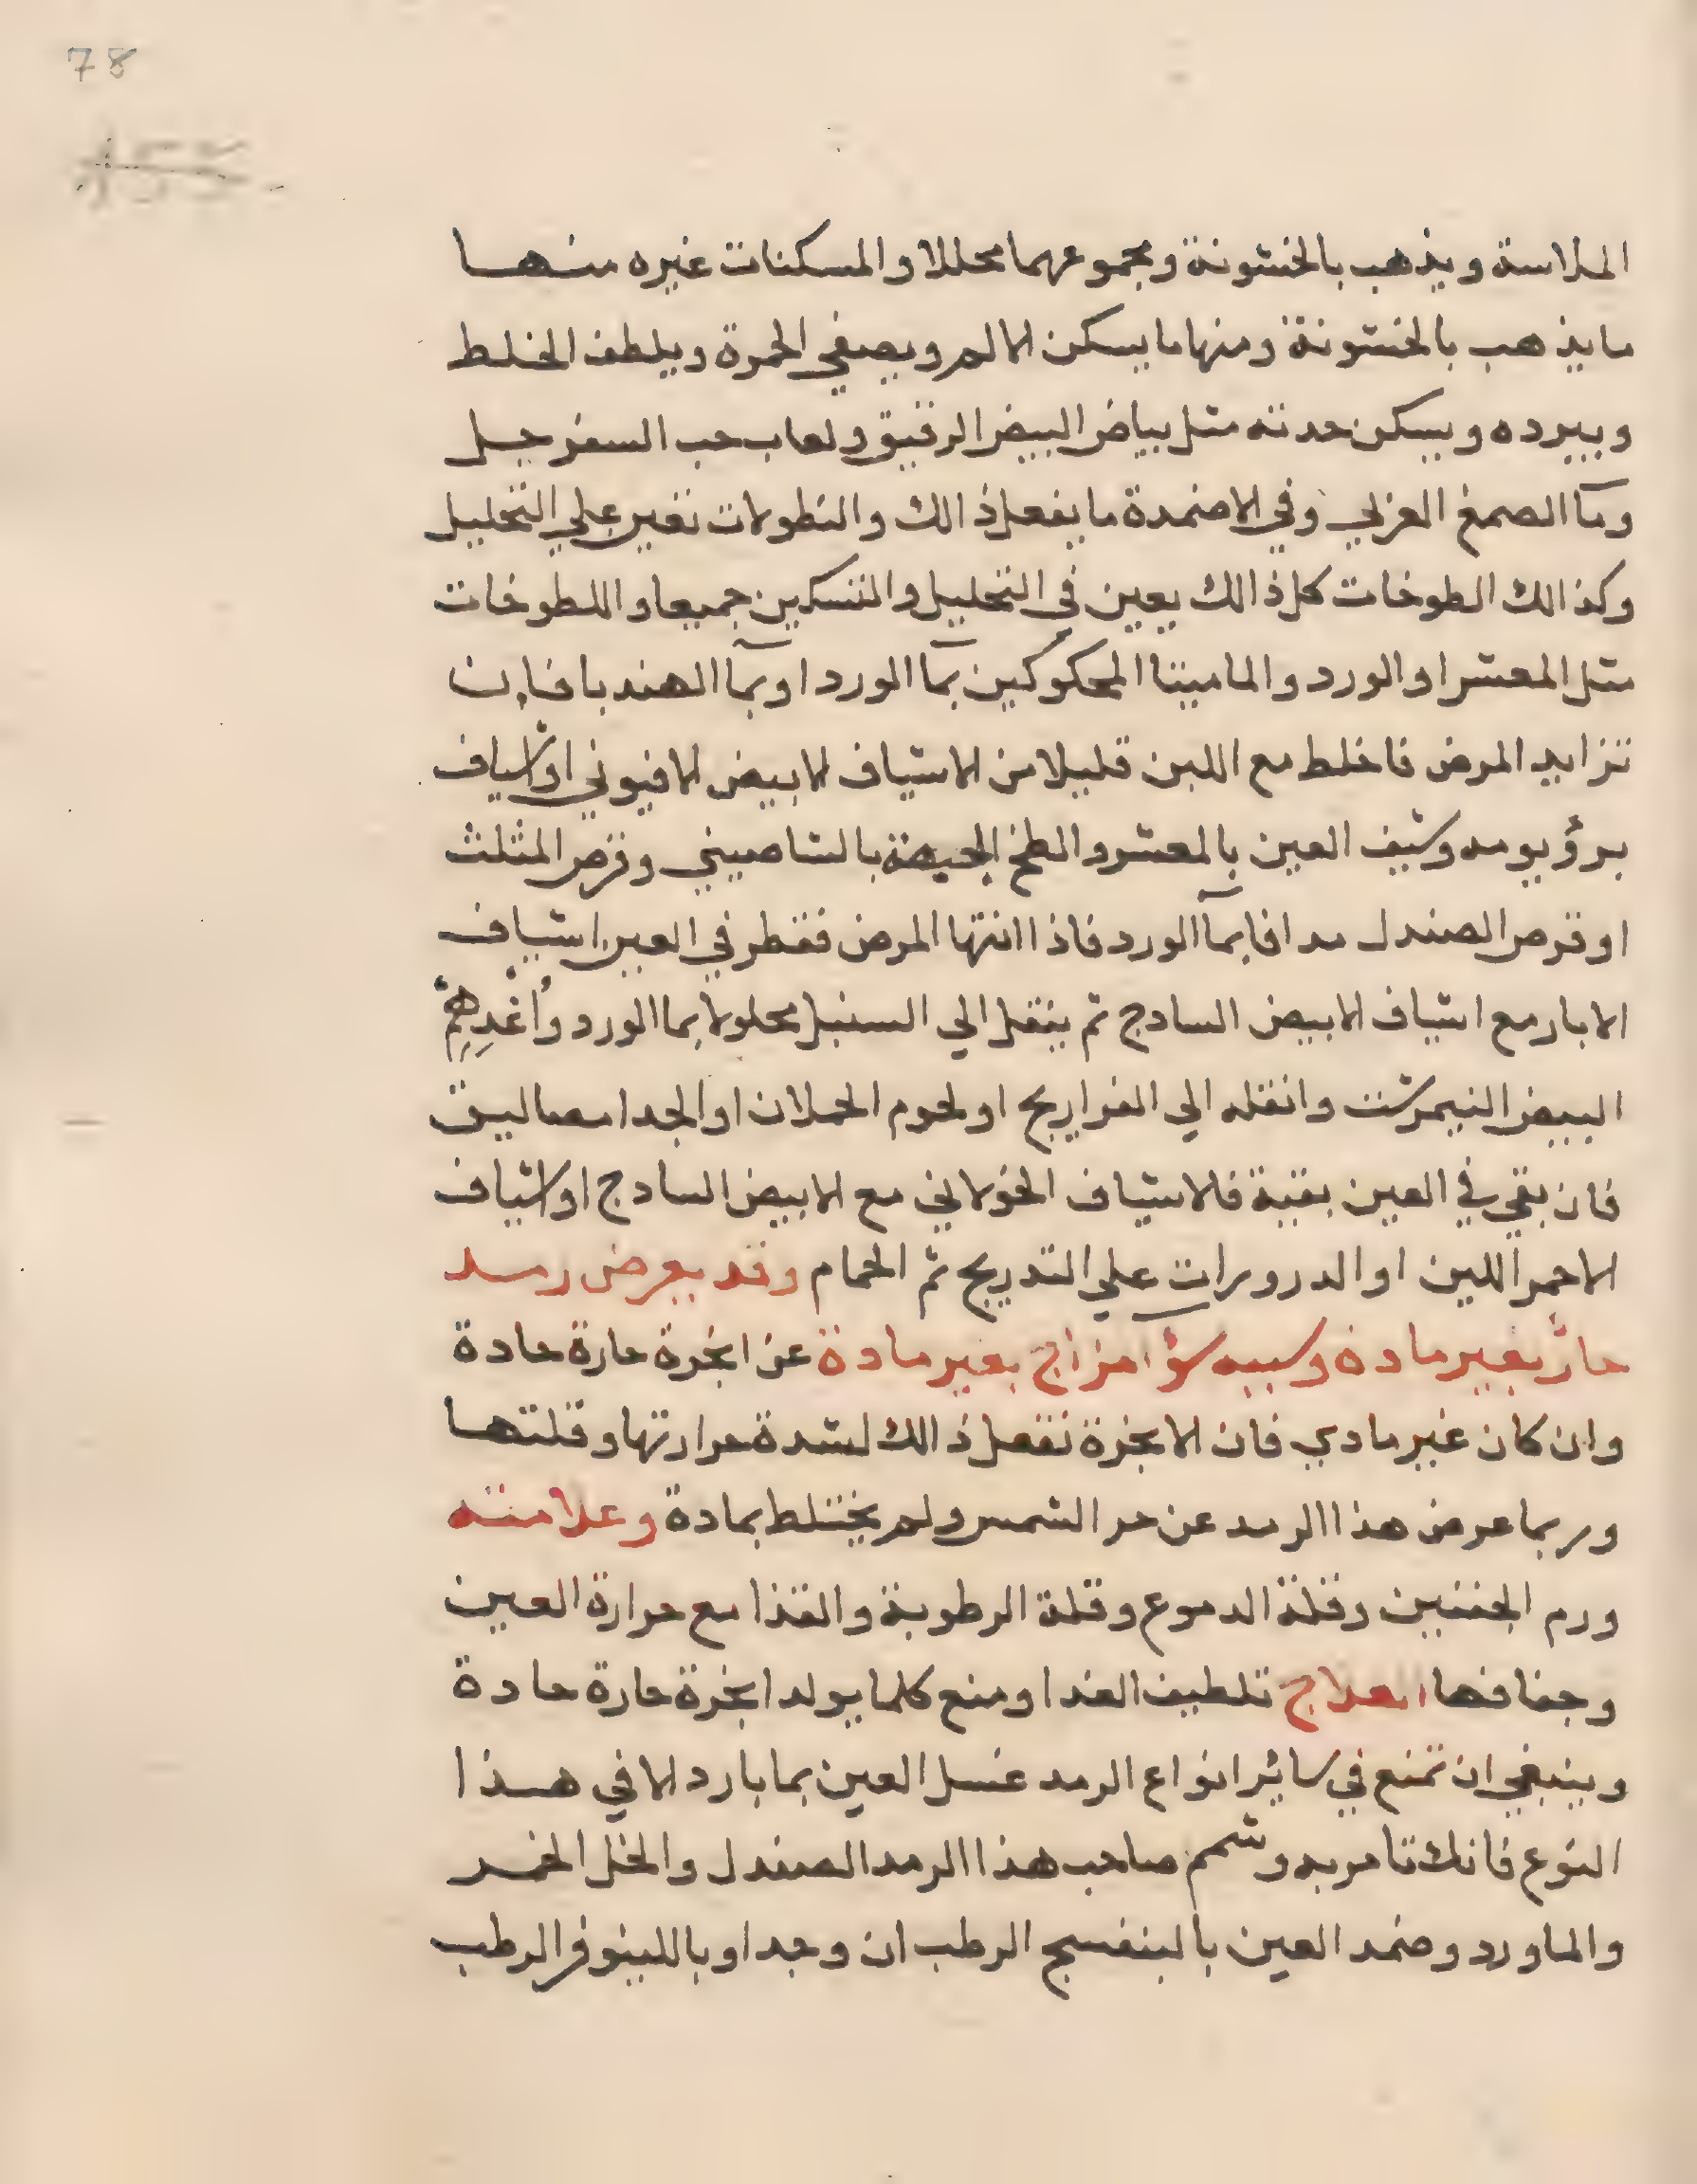 78
الملاسة ويذهب بالخشونة ومجموعهما محللا والمسكنات غيره منها
ما يذهب بالخشونة ومنها ما يسكن الالم ويصفي الحمرة ويلطف الخلط
ويبرده ويسكن حدته مثل بياض البيض الرقيق ولعاب حب السفرجل
ومآ الصمغ العربي وفي الاضمدة ما يفعل ذالك والنطولات تعين علي التحليل
وكذالك الطوخات كل ذالك يعين في التحليل والتسكين جميعا واللطوخات
مثل المعشر او الورد والماميثا المحكوكين بمآ الورد او بمآ الهندبا فان
تزايد المرض فاخلط مع اللبن قليلا من الاشياف الابيض الافيوني او اشياف
برؤ يومه وشيف العين بالمعشر والطخ الجبهة بالشاميثي وقرص المثلث
او قرص الصندل مدافا بمآ الورد فاذا انتها المرض فقطر في العين اشياف
الابار مع اشياف الابيض السادج ثم ينقل الي السنبل محلولا بما الورد واغدهم
البيض النيمرشت وانقله الي الفراريج او لحوم الحملان او الجدا مصاليق
فان بقي في العين بقية فالاشياف الخولاني مع الابيض السادج او اشياف
الاحمر اللين او الدرورات علي التدريج ثم الحمام وقد يعرض رمد
حار بغير مادة وسببه سؤ امزاج بغير مادة عن ابخرة حارة حادة
وان كان غير مادي فان الابخرة تفعل ذالك لشدة حرارتها وقلتها
وربما عرض هذا الرمد عن حر الشمس ولم يختلط بمادة وعلامته
ورم الجفنين وقلة الدموع وقلة الرطوبة والقذا مع حرارة العين
وجفافها العلاج تلطيف الغدا ومنع كلما يولد ابخرة حارة حادة
وينبغي ان تمنع في سائر انواع الرمد غسل العين بما بارد الا في هذا
النوع فانك تامر به وشمم صاحب هذا الرمد الصندل والخل الخمر
والماورد وضمد العين بالبنفسج الرطب ان وجد او باللينوفر الرطب